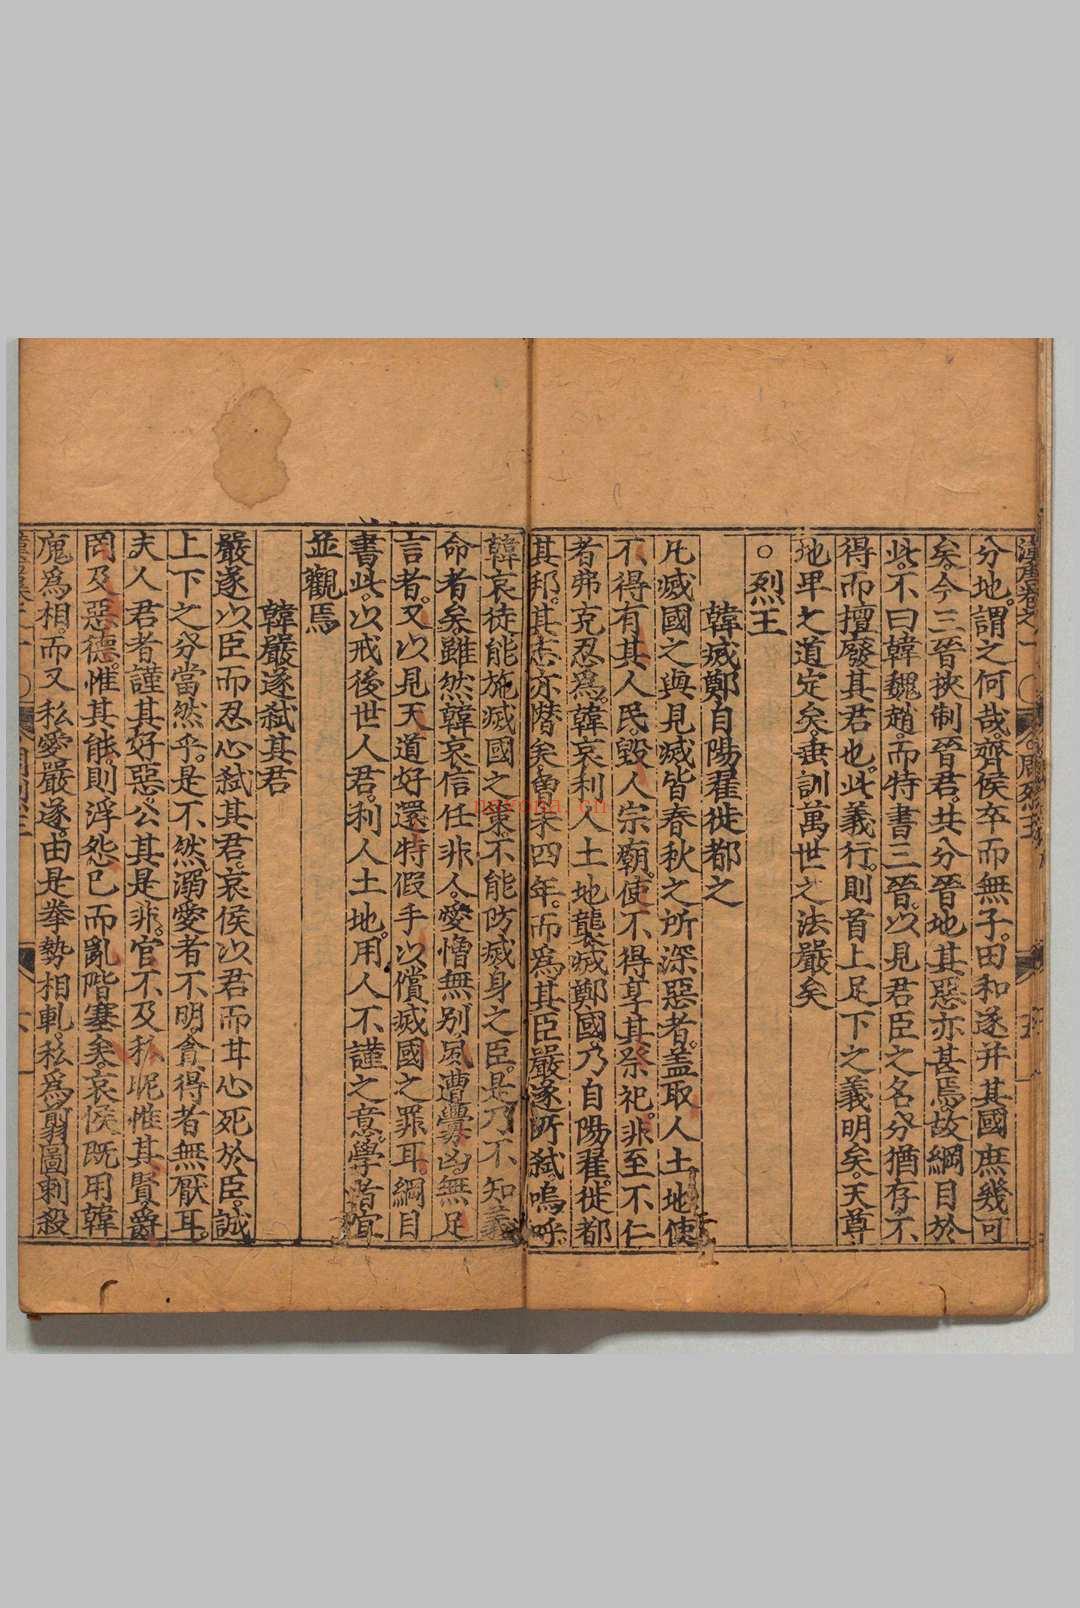 分地謂之何哉齊侯卒而無子田和遂并其國庶幾可
矣今三晉挾制晉君共分晉地其惡亦甚焉故綱目於
此不曰韓魏趙而特書三晉以見君臣之名分猶存不
得而擅廢其君也此義行則首上足下之義明矣天尊
地卑之道定矣垂訓萬世之法嚴矣
○烈王
韓滅鄭自陽翟徙都之
凡滅國之與見滅皆春秋之所深惡者盖取人土地使
不得有其人民毀人宗廟使不得享其祭祀非至不仁
者弗克忍為韓哀利人土地襲滅鄭國乃自陽翟徙都
其邦其志亦憯矣曾未四年而為其臣嚴遂所弑嗚呼
韓哀徒能施滅國之策不能防滅身之臣是乃不知義
命者矣雖然韓哀信任非人愛憎無别夙遭釁凶無足
言者又以見天道好還特假手以償滅國之罪耳綱目
書此以戒後世人君利人土地用人不謹之意學者宜
並觀焉
韓嚴遂弑其君
嚴遂以臣而忍心弑其君哀侯以君而甘心死於臣誠
上下之分當然乎是不然溺愛者不明貪得者無厭耳
夫人君者謹其好惡公其是非官不及私昵惟其賢爵
罔及惡德惟其能則浮怨已而亂階塞矣哀侯既用韓
廆為相而又私愛嚴遂由是拳勢相軋私為剪圖刺殺
navona.cn